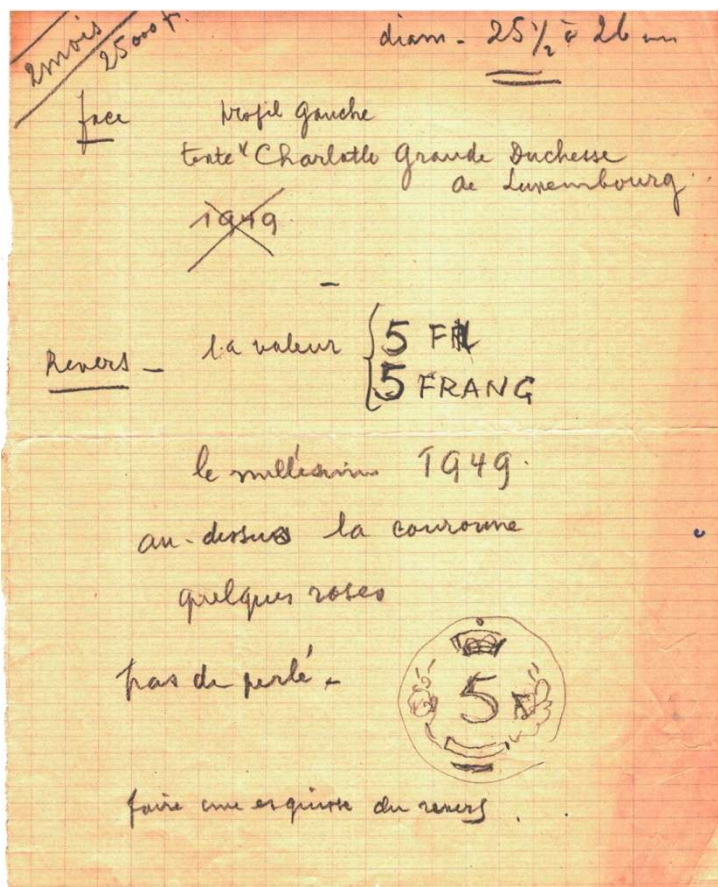 2 mois
25000 f.
diam - 25 1/2 à 26 mm
face Profil gauche
texte "Charlotte Grande Duchesse
de Luxembourg
1949
-
Revers - la valeur { 5 FR
5 FRANG
le millésime 1949.
au-dessus la couronne
quelques roses
pas de perlé -
5
faire une esquisse du revers.